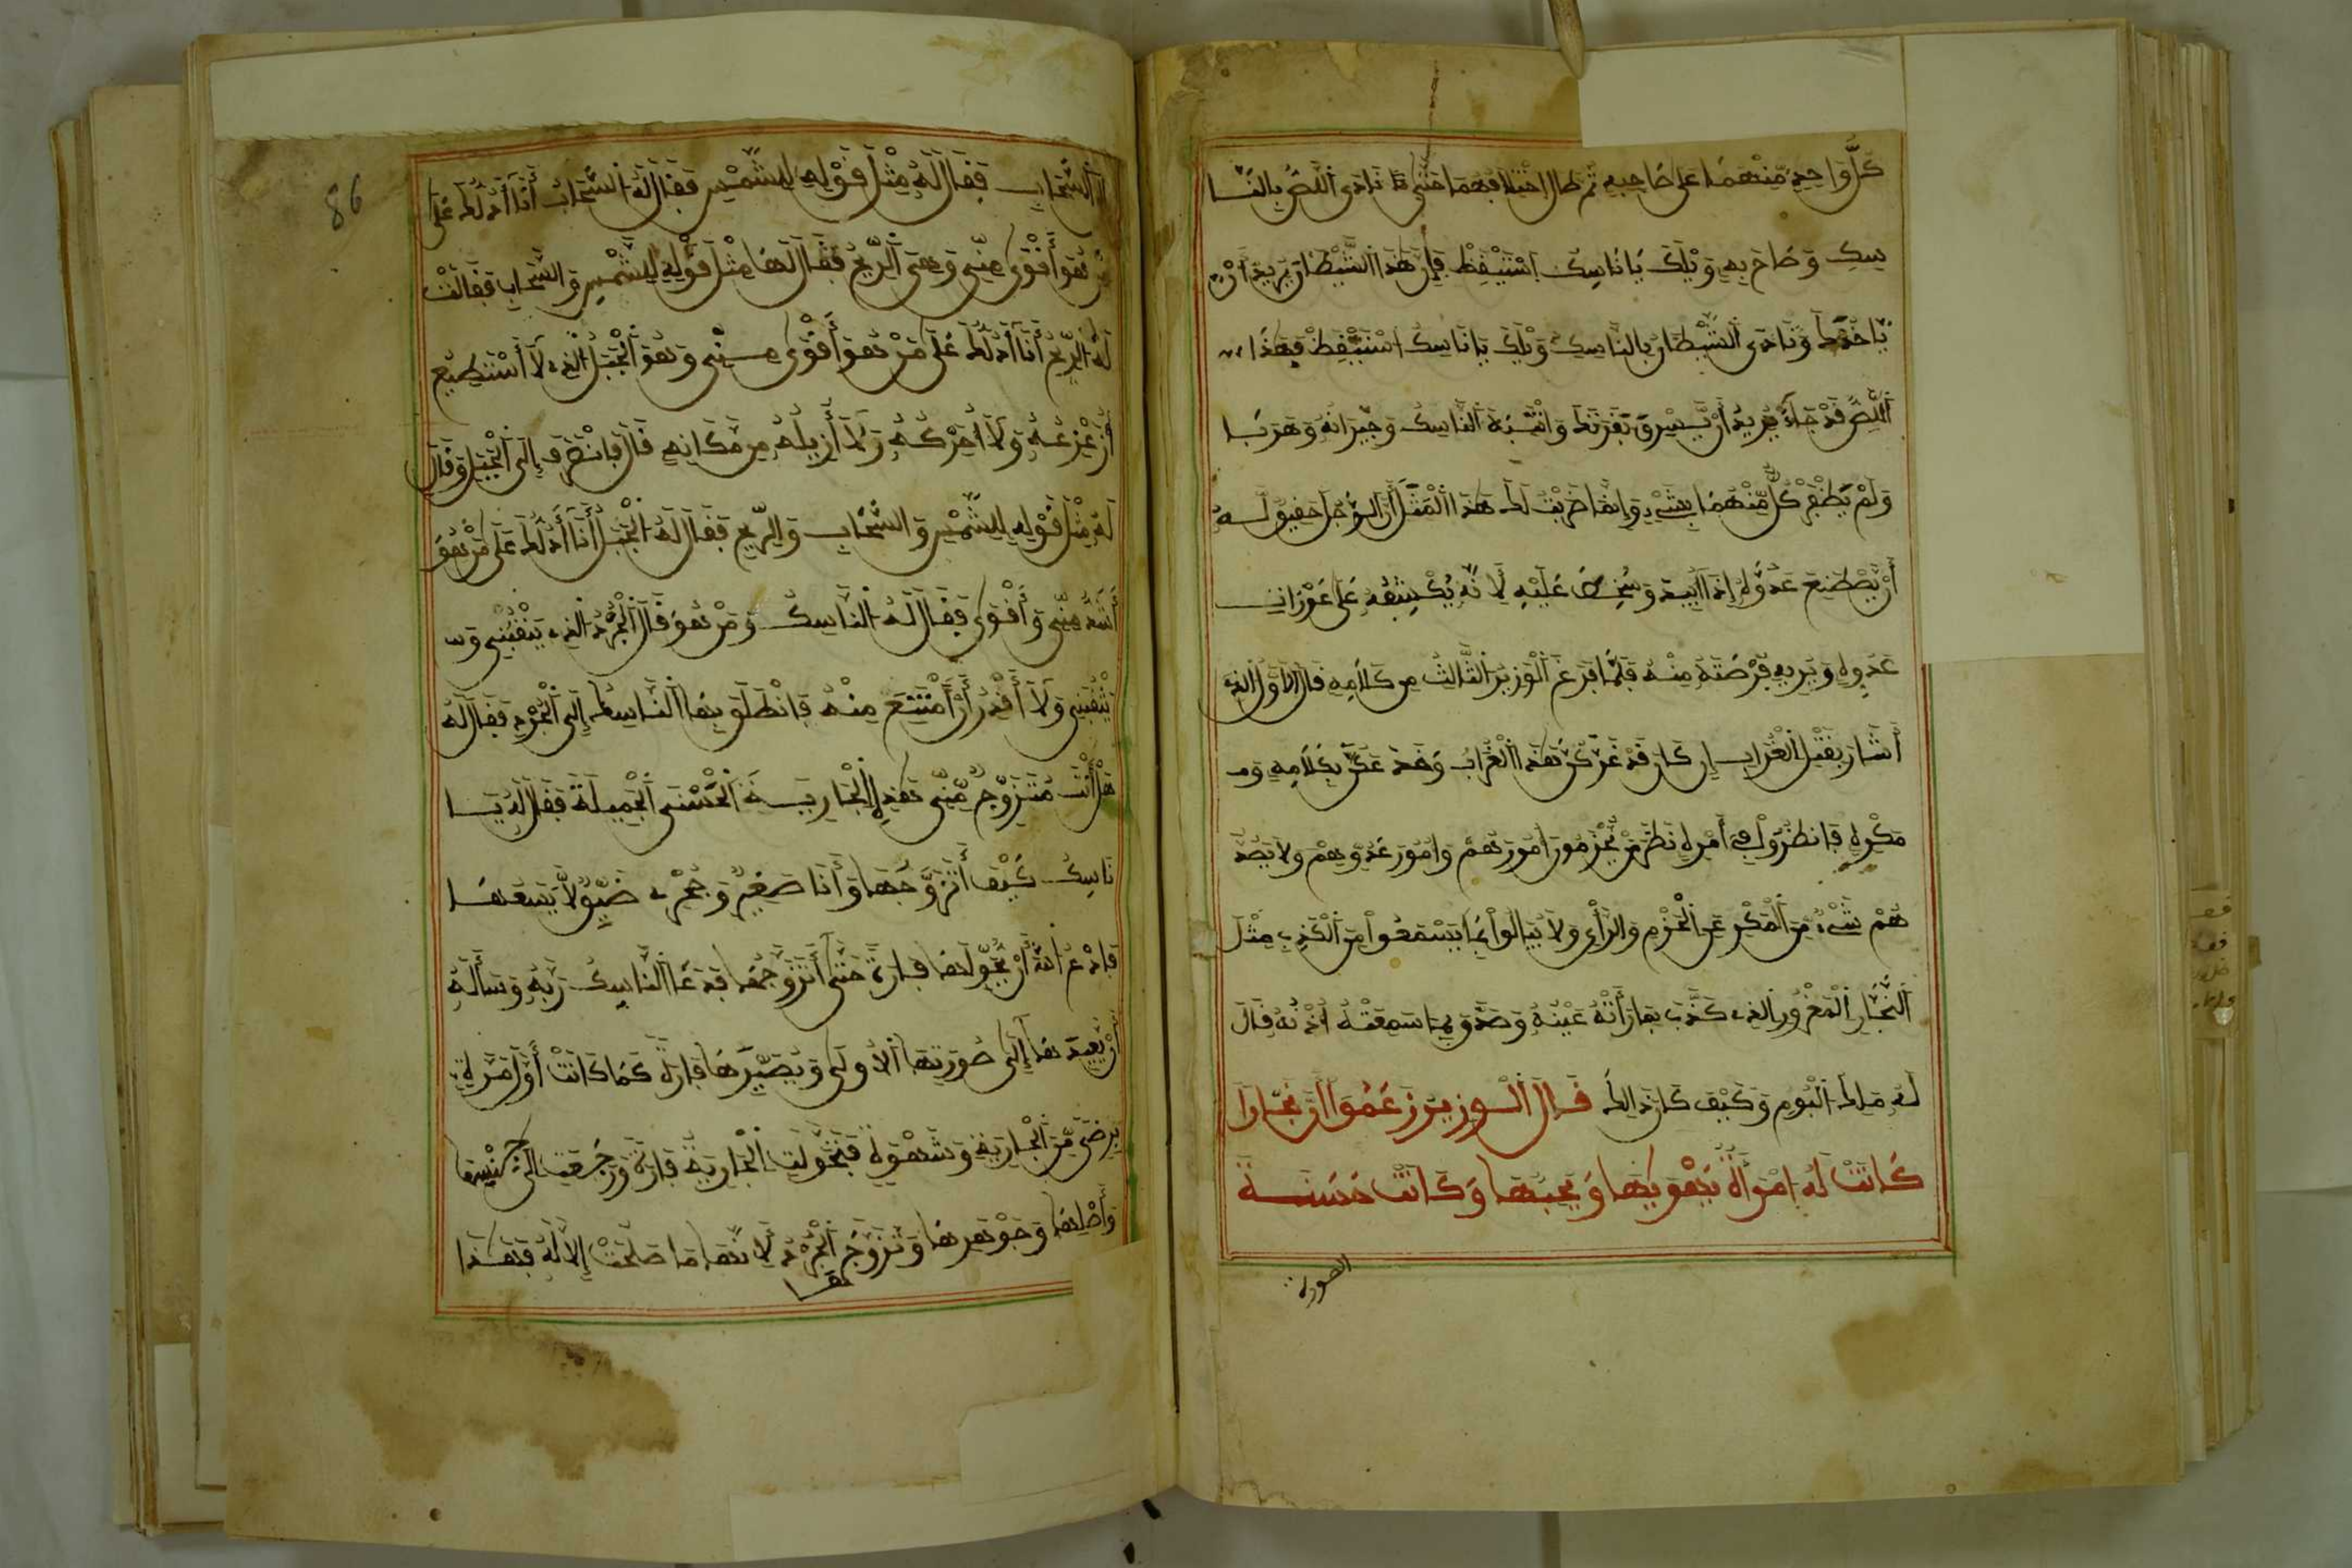 كل واحد منهما على صاحبه ثم طال اختلافهما حتى نادى اللص بالنا
سك وصاح به ويلك يا ناسك استيقظ فإن هذا الشيطان يريد أن
يأخذك ونادى الشيطان بالناسك ويلك يا ناسك استيقظ فهذا
اللص قد جاء يريد أن يسرق بقرتك وانتبه الناسك وجيرانه وهربا
ولم يظفر كل منهما بشيء وإنما ضربت لك هذا المثل أن الرجل حقيق له
أن يصطنع عدوه إذا عليه لأنه يكشفه على عورات
عدوه ويريه فرصته منه فلما فرغ الوزير الثالث من كلامه قال الأول الذي
أشار بقتل الغراب إن كان قد غركن هذا الغراب وقد غكن بكلامه و
مكره فانظروا في أمره نظر من يحزمون أمورهم وأمور عدوهم ولا يصد
هم شيء من المكر عن الحزم والرأي ولا يبالوا بما يسمعوا من الكذب مثل
النجار المغرور الذي كذب بما رأته عينه وصدق بما سمعته أذنه قال
له ملك البوم وكيف كان ذلك قال الوزير زعموا أن نجارا
كانت له امرأة يهويها ويحبها وكانت حسنة
الصورة
86
السحاب فقال له مثل قوله للشمس فقال له السحاب أنا أدلك على
من هو أقوى مني وهي الريح فقال لها مثل قوله للشمس والسحاب فقالت
له الريح أنا أدلك على من هو أقوى مني وهو الجبل الذي لا أستطيع
أن ولا أحركه ولا أزيله من مكانه قال فانصرف إلى الجبل وقال
له مثل قوله للشمس والسحاب والريح فقال له الجبل أنا أدلك على من هو
أشد مني وأقوى فقال له الناسك ومن هو قال الجرد الذي ينقبني و
يثقبني ولا أقدر أن أمتنع منه فانطلق بها الناسك إلى الجرد فقال له
هل أنت متزوج مني هذه الجارية الحسنى الجميلة فقال له يا
ناسك كيف أتزوجها وأنا صغير وجحري ضيق لا يسعها
فادع الله أن يحولها فارة حتى أتزوجها فدعا الناسك ربه وسأله
أن يعيدها إلى صورتها الأولى ويصيرها فارة كما كانت أول مرة
برضى من الجارية وشهوة فتحولت الجارية فارة ورجعت إلى جنسها
وأصلها وجوهرها وتزوج الجرد لأنها ما صلحت إلا له فهكذا
بها